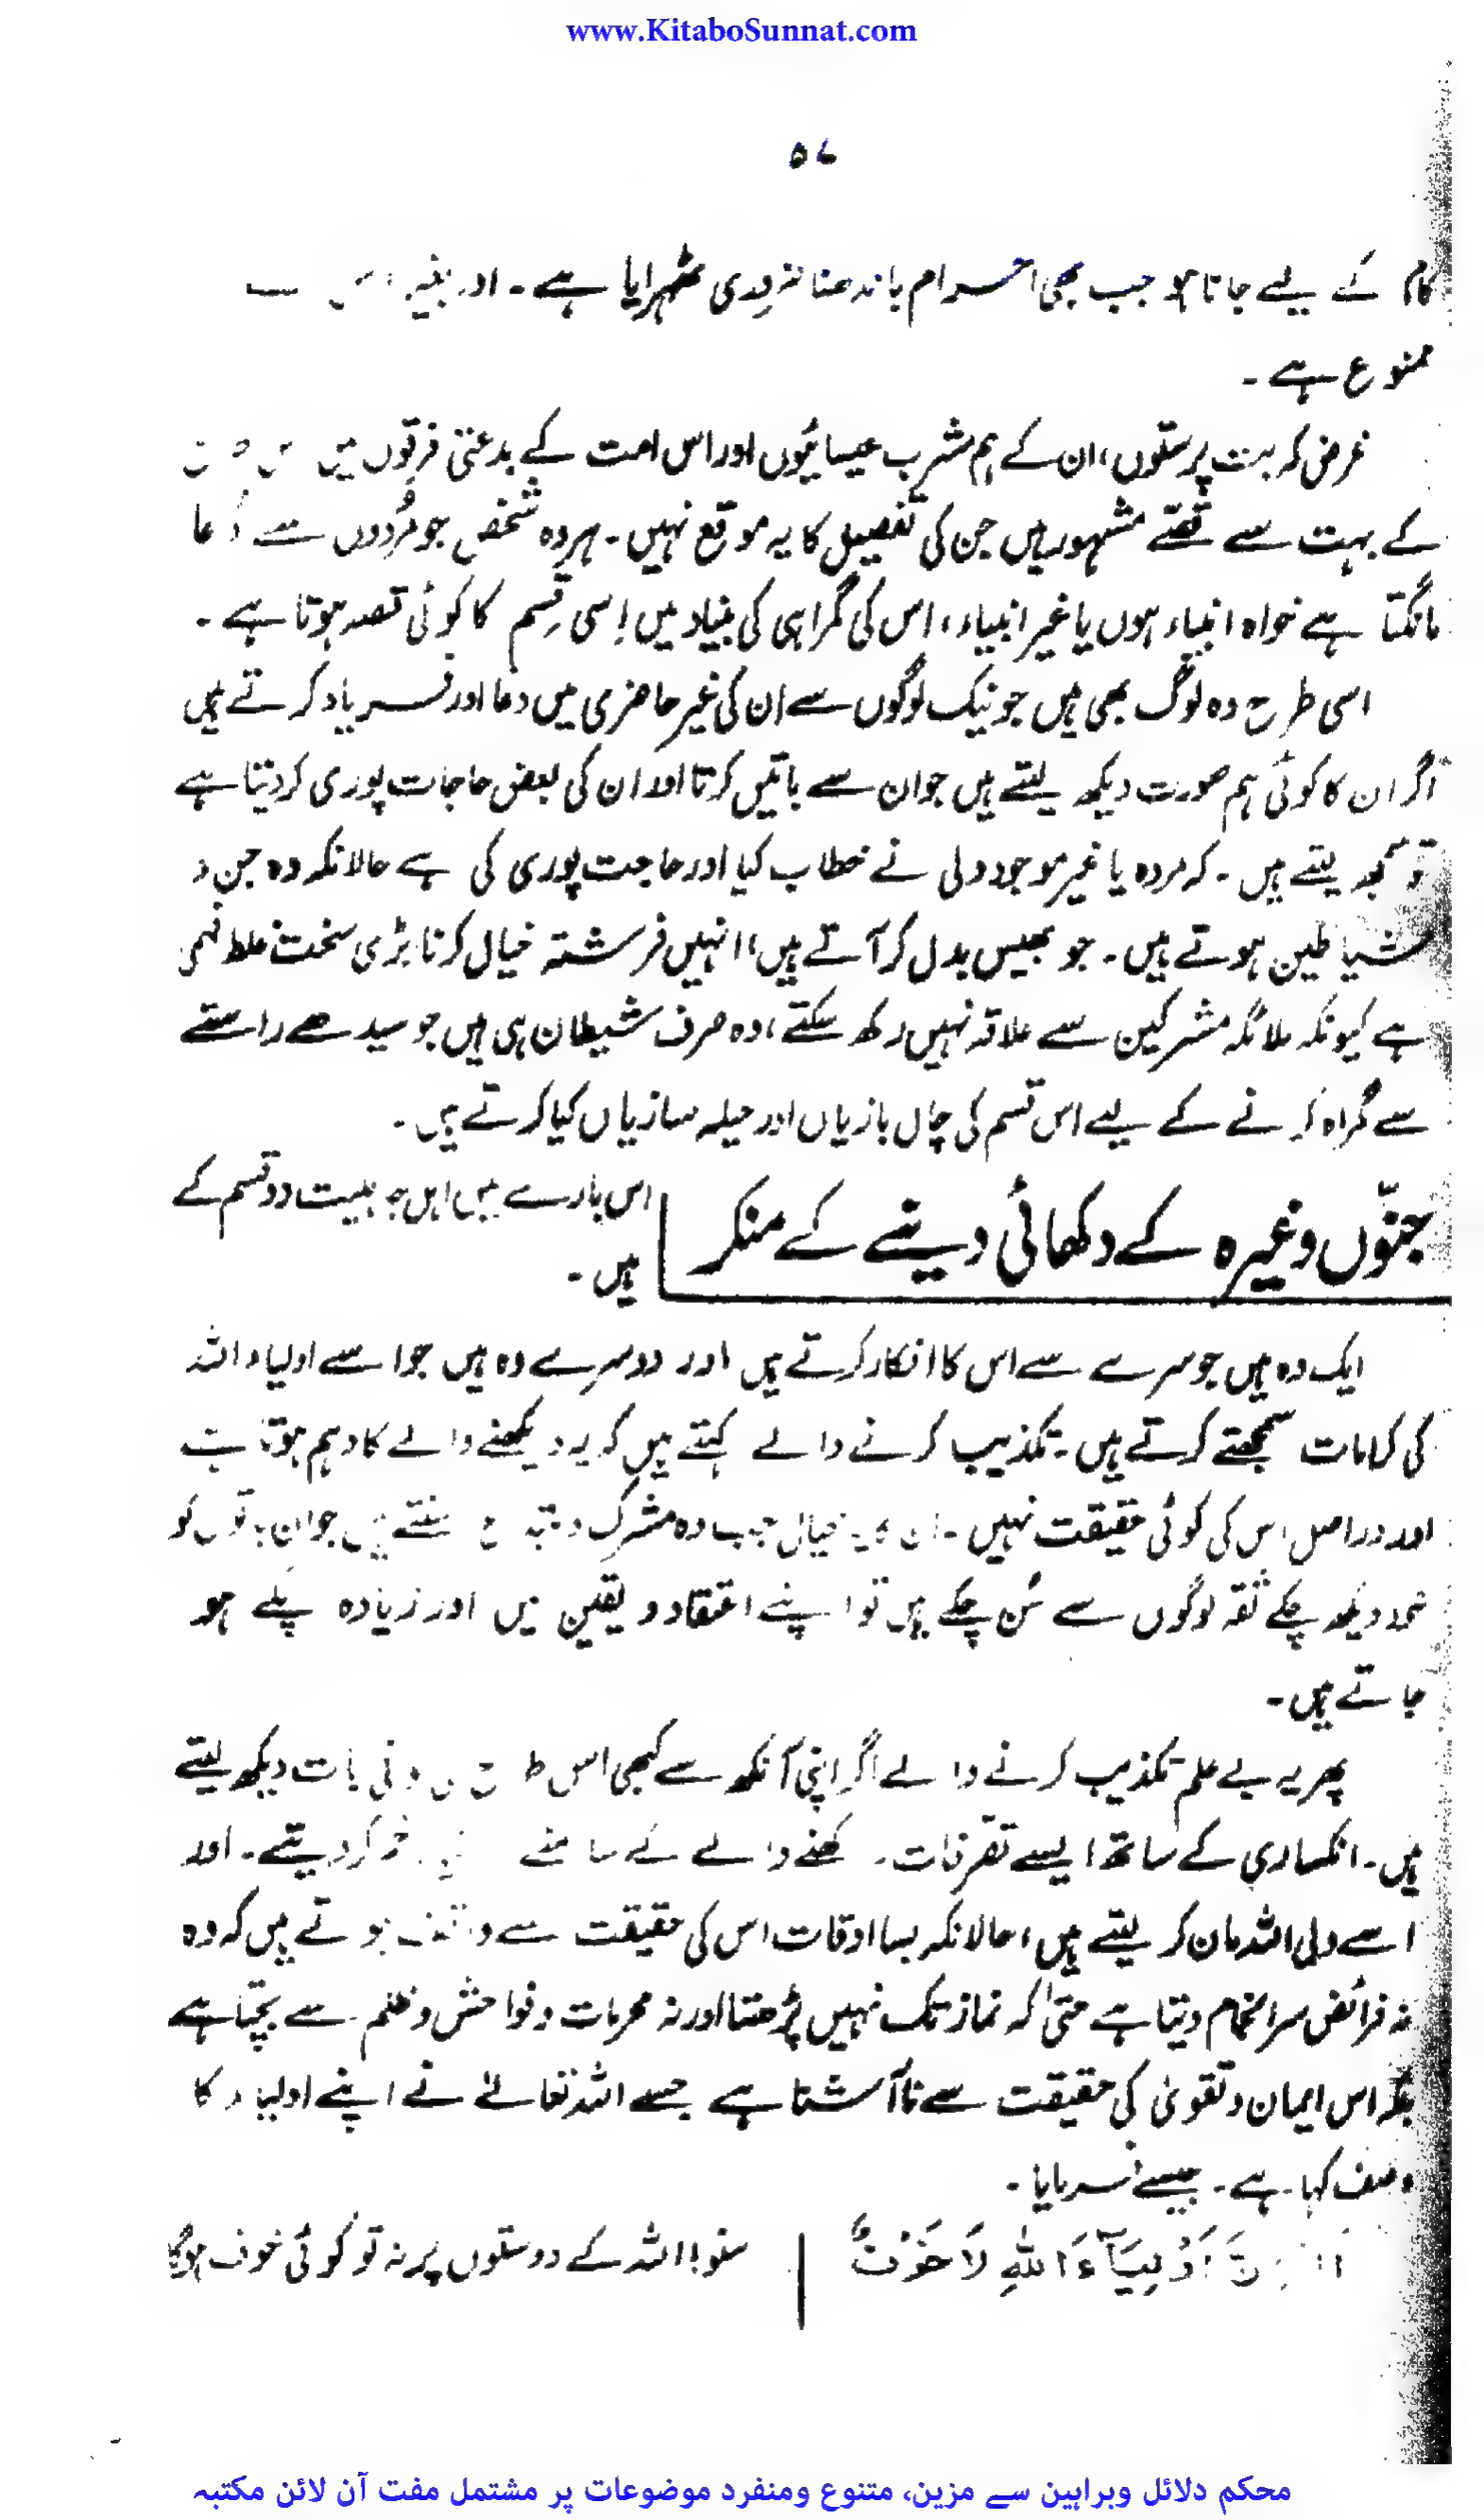 www.KitaboSunnat.com
۵۷
کام کے لیے جاتا ہو جب بھی احرام باندھنا ضروری ٹھہرایا ہے۔ اور بغیر اس
ممنوع ہے۔
غرض کہ بت پرستوں، ان کے ہم مشرب عیسائیوں اور اس امت کے بدعتی فرقوں میں اس
کے بہت سے قصّے مشہور ہیں جن کی تفصیل کا یہ موقع نہیں۔ ہر وہ شخص جو مُردوں سے دُعا
مانگتا ہے خواہ انبیاء ہوں یا غیر انبیاء، اس کی گمراہی کی بنیاد میں اِسی قِسم کا کوئی قصہ ہوتا ہے۔
اسی طرح وہ لوگ بھی ہیں جو نیک لوگوں سے ان کی غیر حاضری میں دعا اور فریاد کرتے ہیں
اگر ان کا کوئی ہم صورت دیکھ لیتے ہیں جو ان سے باتیں کرتا اور ان کی بعض حاجات پوری کر دیتا ہے
تو سمجھ لیتے ہیں۔ کہ مردہ یا غیر موجود ولی نے خطاب کیا اور حاجت پوری کی ہے حالانکہ وہ جن و
شیاطین ہوتے ہیں۔ جو بھیس بدل کر آتے ہیں، انہیں فرشتہ خیال کرنا بڑی سخت غلط فہمی
ہے کیونکہ ملائکہ مشرکین سے علاقہ نہیں رکھ سکتے، وہ صرف شیطان ہی ہیں جو سیدھے راستے
سے گمراہ کرنے کے لیے اس قسم کی چال بازیاں اور حیلہ سازیاں کیا کرتے ہیں۔
جنّوں وغیرہ کے دکھائی دینے کے منکر
اس بارے میں اہلِ جاہلیت دو قسم کے
ہیں۔
ایک وہ ہیں جو سرے سے اس کا انکار کرتے ہیں اور دوسرے وہ ہیں جو اسے اولیاء اللہ
کی کرامات سمجھتے کرتے ہیں۔ تکذیب کرنے والے کہتے ہیں کہ یہ دیکھنے والے کا وہم ہوتا ہے
اور دراصل اس کی کوئی حقیقت نہیں۔ ان کا یہ خیال جب وہ مشرک و سنتے ہیں جو ان باتوں کو
خود دیکھ چکے ثقہ لوگوں سے سُن چکے ہیں تو اپنے اعتقاد و یقین میں اور زیادہ پکے ہو
جاتے ہیں۔
پھر یہ بے علم تکذیب کرنے والے اگر اپنی آنکھ سے کبھی اس طرح کی کوئی بات دیکھ لیتے
ہیں۔ انکساری کے ساتھ ایسے تصرفات رکھنے والے کے سامنے کر دیتے۔ اور
اسے ولی اللہ مان کر لیتے ہیں، حالانکہ بسا اوقات اس کی حقیقت سے واقف ہوتے ہیں کہ وہ
نہ فرائض سرانجام دیتا ہے حتیٰ کہ نماز تک نہیں پڑھتا اور نہ محرمات و فواحش و ظلم سے بچتا ہے
بلکہ اس ایمان و تقویٰ کی حقیقت سے ناآشنا ہے جسے اللہ تعالےٰ نے اپنے اولیاء کا
وصف کہا ہے۔ جیسے فرمایا۔
اَوْلِیَآءَ اللّٰہِ لَا خَوْفٌ
سنو! اللہ کے دوستوں پر نہ تو کوئی خوف ہوگا
محکم دلائل وبراہین سے مزین، متنوع ومنفرد موضوعات پر مشتمل مفت آن لائن مکتبہ